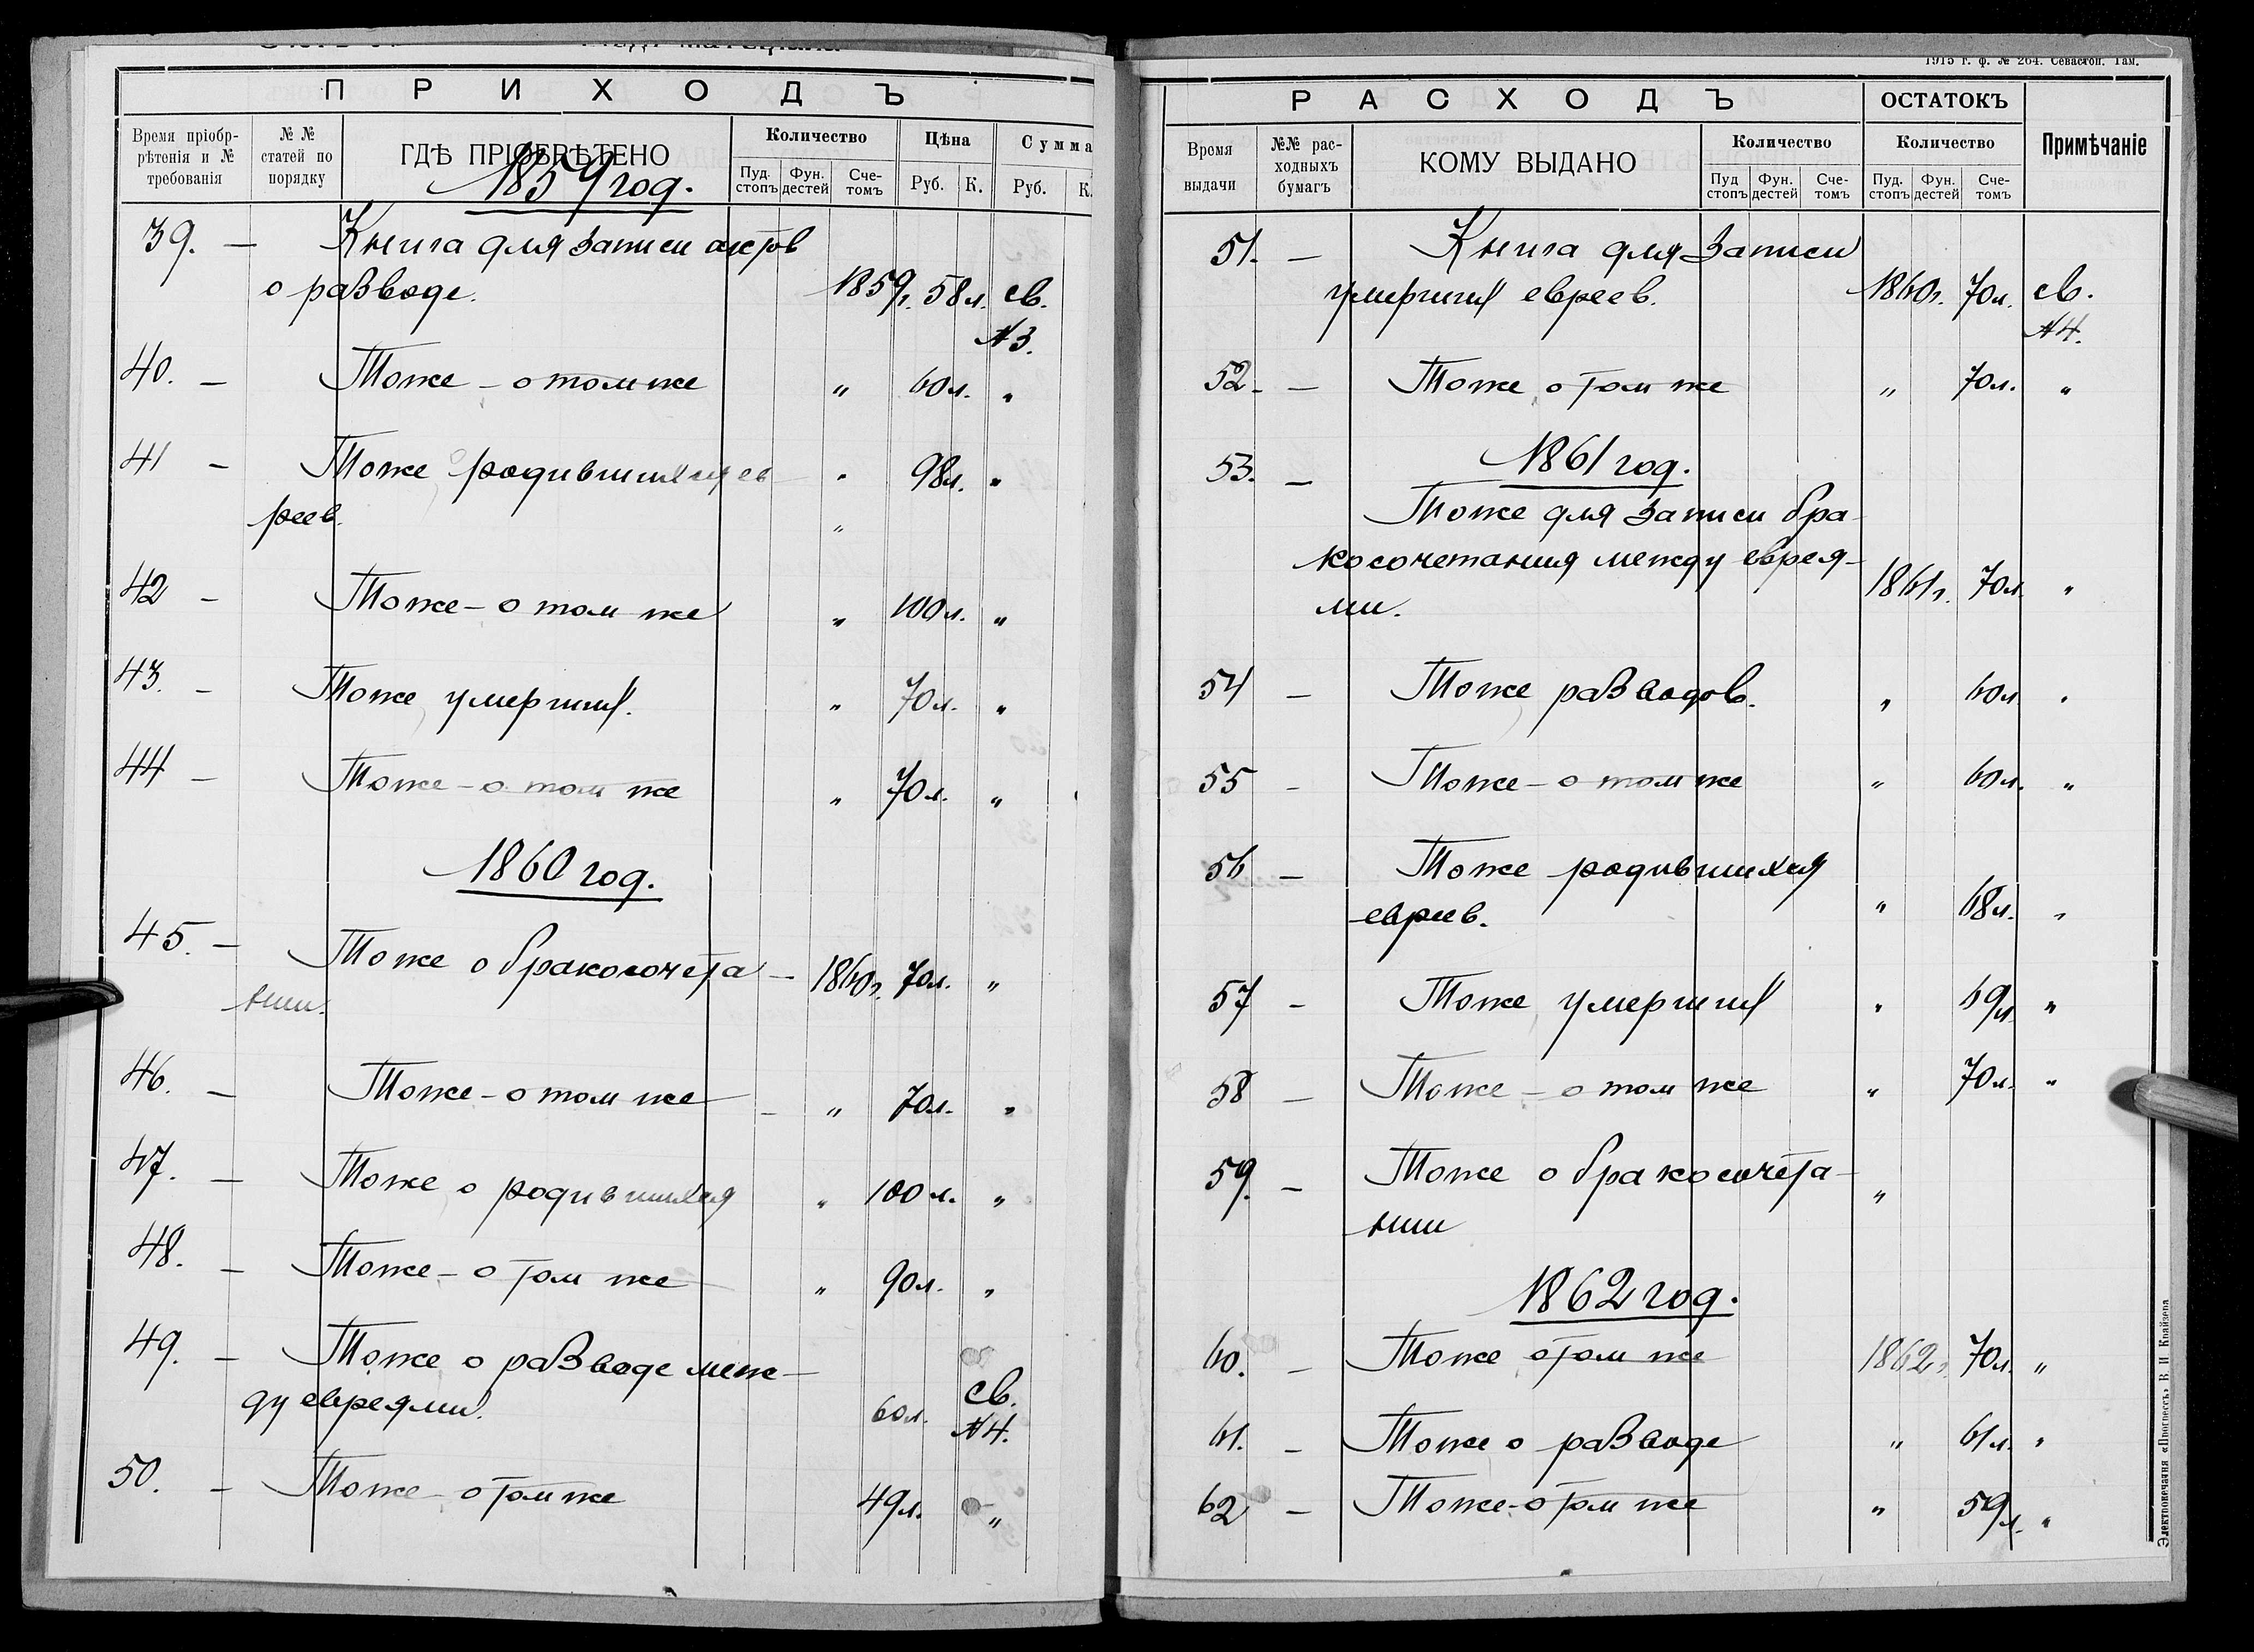 ПРИХОДЪ
Время пріобр-
рѣтенія и №
требованія
№ №
статей по
порядку
ГДѢ ПРІОБРѢТЕНО
Количество
Цѣна
Сумма
Пуд.
стопъ
Фун.
дестей
Сче-
томъ
Руб.
К.
Руб.
К.
1859 год.
39. — Книга для записи актов
о разводе. 1859г. 58л. св.
№3.
40. — Тоже – о том же " 60л. "
41 — Тоже о родившихся ев " 98л. "
реев. "
42 — Тоже – о том же " 100л. "
43. — Тоже умерших. " 70л. "
44 — Тоже – о том же " 70л. "
1860 год.
45. — Тоже о бракосочета– 1860г. 70л. "
нии.
46. — Тоже – о том же – " 70л. "
47. — Тоже о родившихся " 100л. "
48. — Тоже – о том же " 90л. "
49. — Тоже о разводе меж–
ду евреями. 60л. св.
№4.
50. — Тоже – о том же 49л. "
1915 г. ф. № 264. Севастоп. Там.
РАСХОДЪ
ОСТАТОКЪ
Время
выдачи
№№ рас-
ходныхъ
бумагъ
КОМУ ВЫДАНО
Количество
Количество
Примѣчаніе
Пуд
стопъ
Фун.
дестей
Сче-
томъ
Пуд.
стопъ
Фун.
дестей
Сче-
томъ
51. — Книга для записи
умерших евреев. 1860г. 70л. св.
№4.
52. — Тоже о том же " 70л. "
1861 год.
53. — Тоже для записи бра–
косочетания между еврея–
ми. 1861г. 70л. "
54 — Тоже разводов. " 60л. "
55 – Тоже – о том же " 60л. "
56 — Тоже родившихся
евреев. " 68л. "
57 – Тоже умерших " 69л. "
58 — Тоже – о том же " 70л. "
59. — Тоже о бракосочета– "
нии
1862 год.
60. — Тоже о том же 1862г. 70л. "
61. — Тоже о разводе " 61л. "
62 — Тоже – о том же " 59л. "
Электропечатня «Прогрессъ»